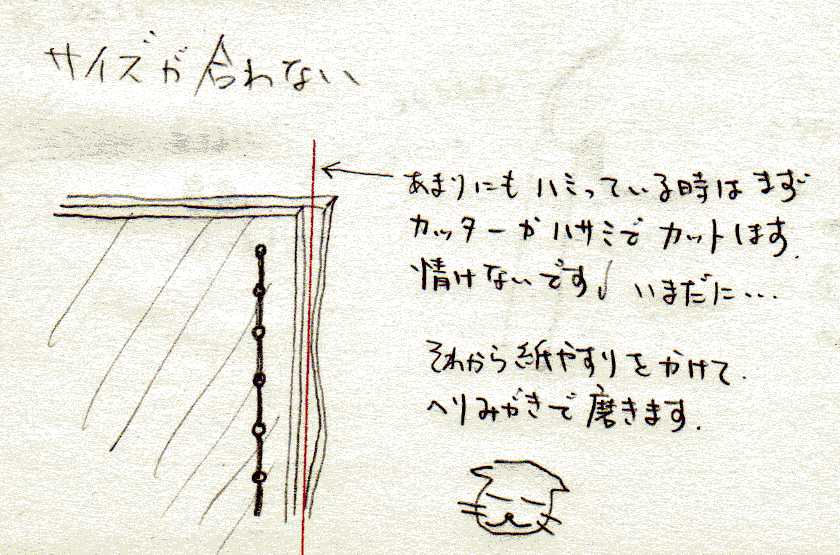 サイズが合わない
あまりにもハミっている時はまず
カッターかハサミでカットします.
情けないです♩いまだに…
それから紙やすりをかけて.
ヘリみがきで磨きます.